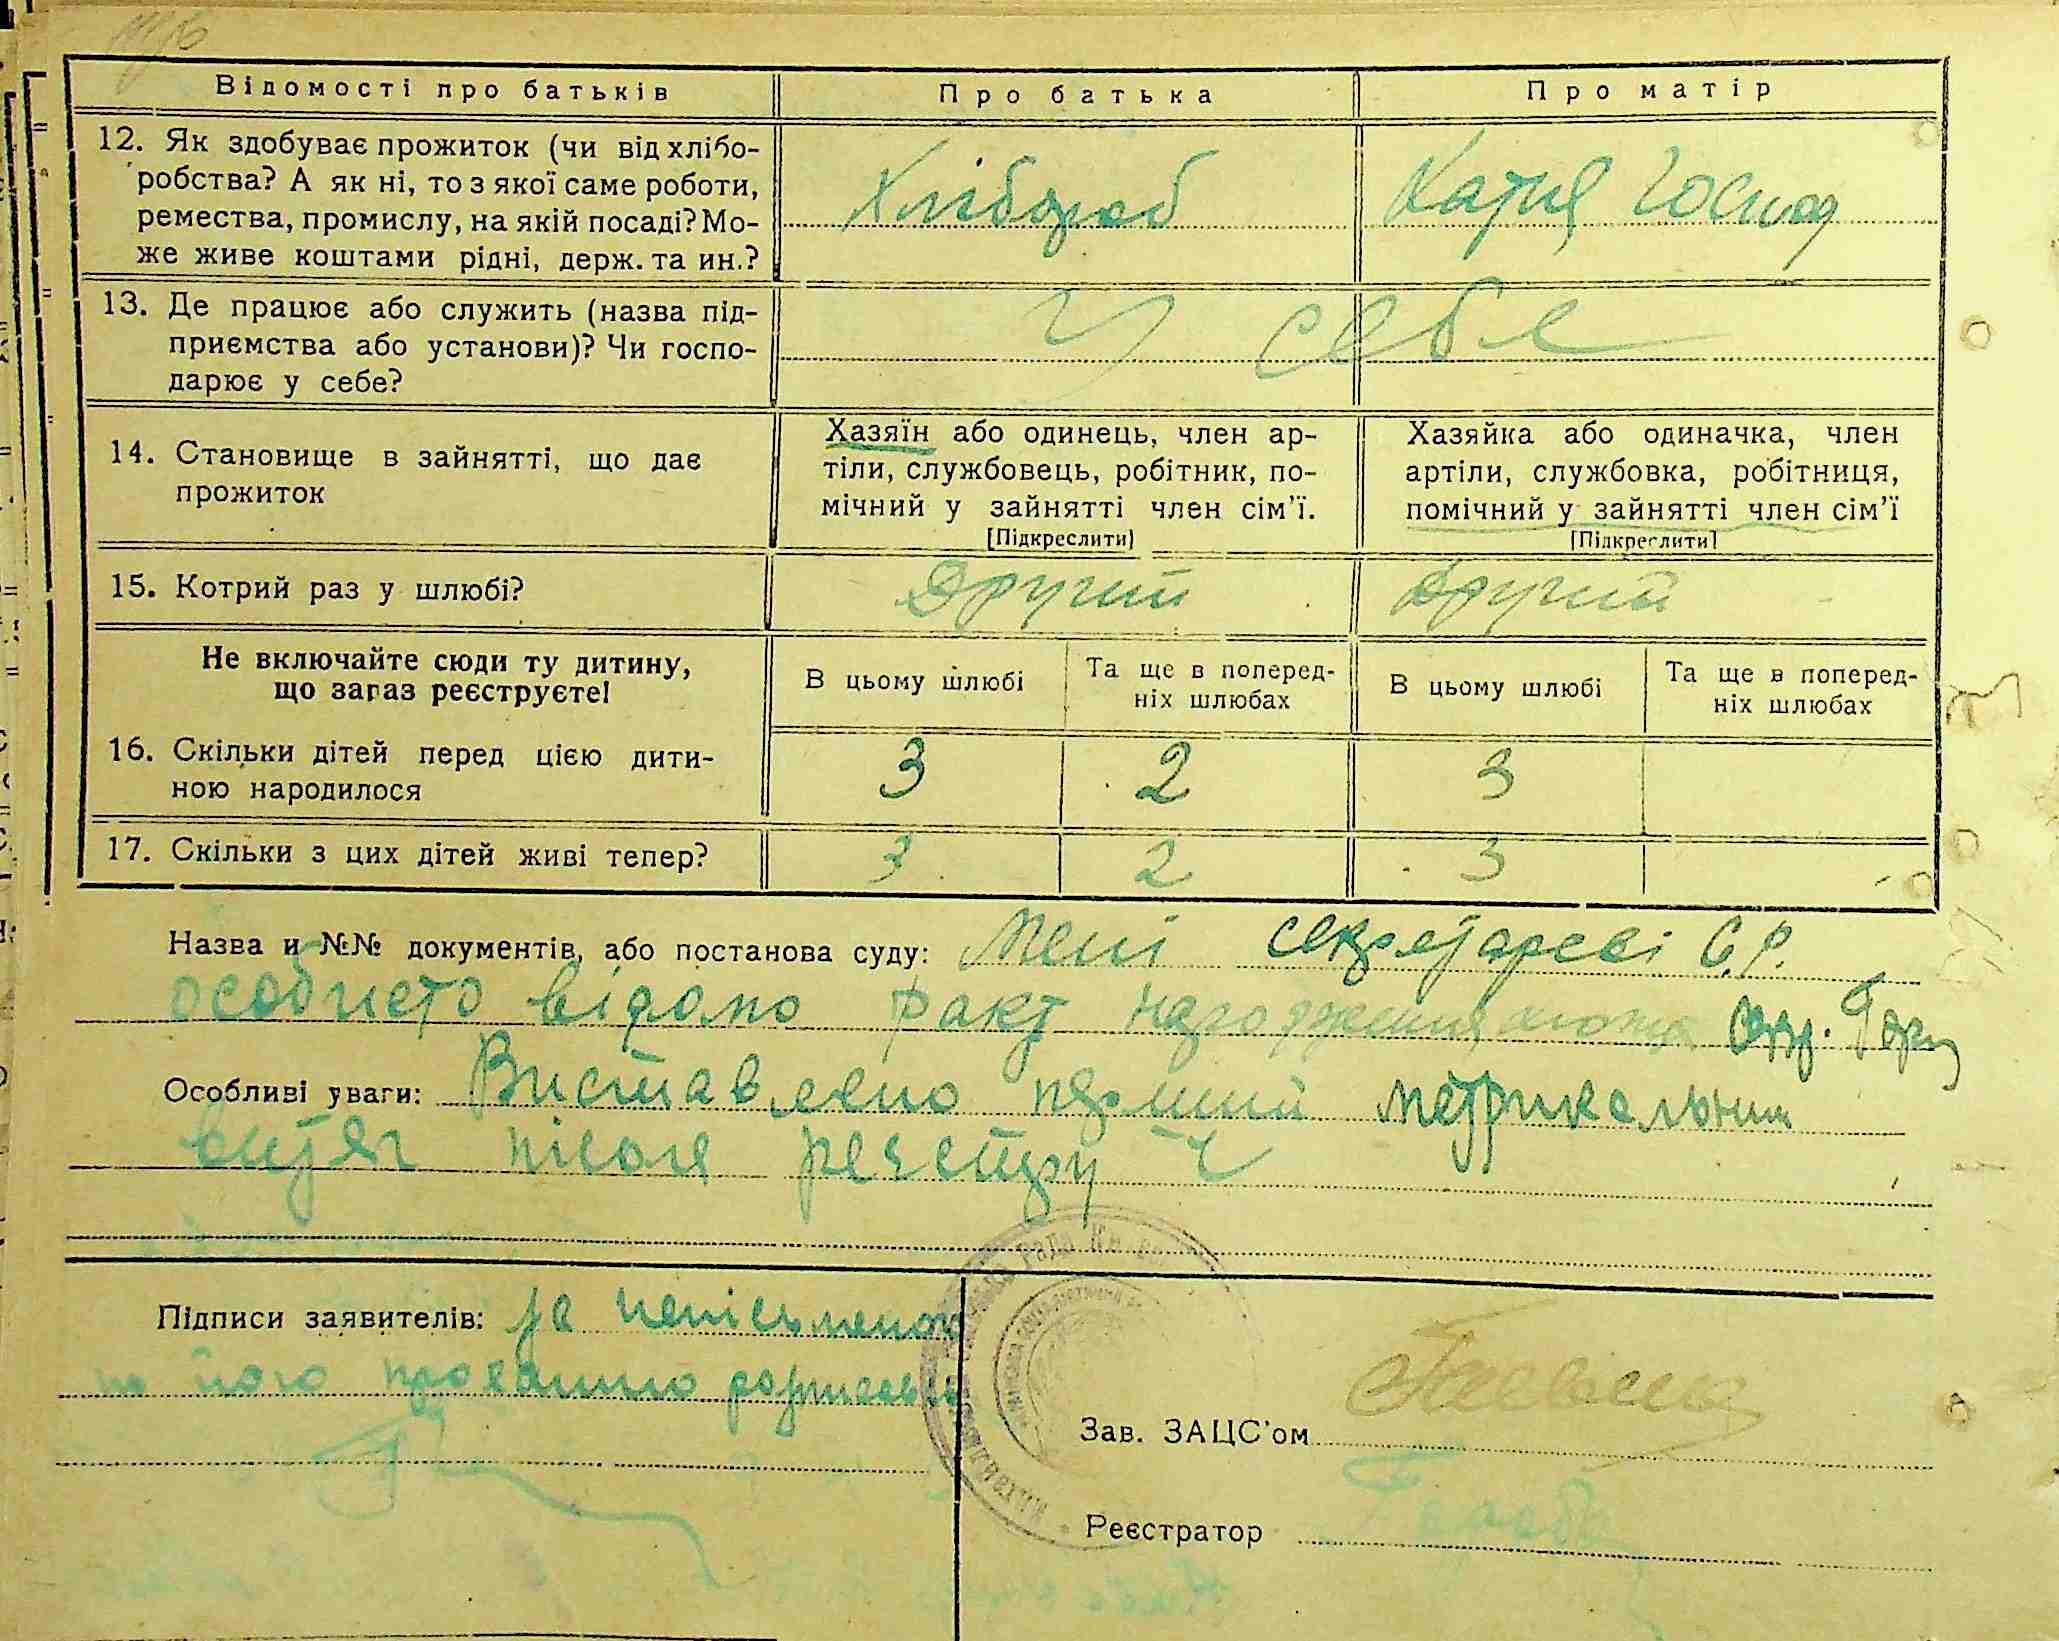 Відомості про батьків
Про батька
Про матір
12. Як здобуває прожиток (чи від хлібо-
робства? А як ні, то з якої саме роботи,
ремества, промислу, на якій посаді? Мо-
же живе коштами рідні, держ. та ин.?
Хлібороб
Хатня Господ
13. Де працює або служить (назва під-
приємства або установи)? Чи госпо-
дарює у себе?
У себе
14. Становище в зайнятті, що дає
прожиток
Хазяїн або одинець, член ар-
тіли, службовець, робітник, по-
мічний у зайнятті член сім'ї.
[Підкреслити]
Хазяйка або одиначка, член
артіли, службовка, робітниця,
помічний у зайнятті член сім'ї
[Підкреслити]
15. Котрий раз у шлюбі?
Другий
Другий
Не включайте сюди ту дитину,
що зараз реєструєте!
В цьому шлюбі
Та ще в поперед-
ніх шлюбах
В цьому шлюбі
Та ще в поперед-
ніх шлюбах
16. Скільки дітей перед цією дити-
ною народилося
3
2
3
17. Скільки з цих дітей живі тепер?
3
2
3
Назва и №№ документів, або постанова суду: Мені секретареві С.Р.
особисто відомо факт народження
Особливі уваги: Виставлено перший метрикальний
витяг після реєстру
Підписи заявителів: за неписьменого
по його проханню розписавсь
Зав. ЗАЦС'ом
Реєстратор